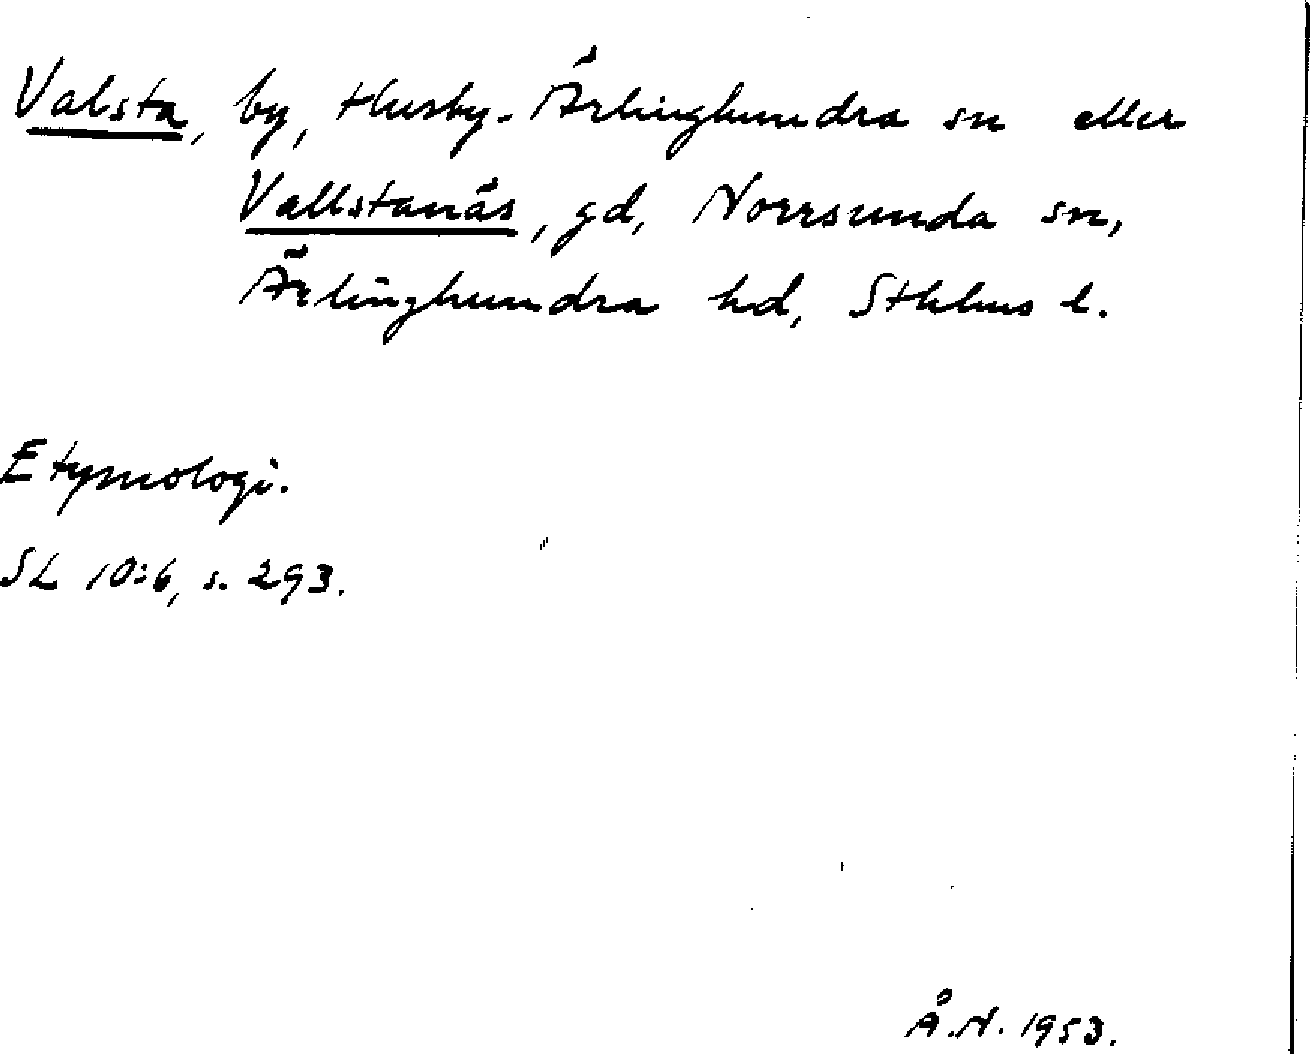 Valsta, by, Husby-Ärlinghundra sn eller
Vallstanäs, gd, Norrsunda sn,
Ärlinghundra hd, Sthlms l.
Etymologi.
SL 10:6, s. 293.
Å.N. 1953.